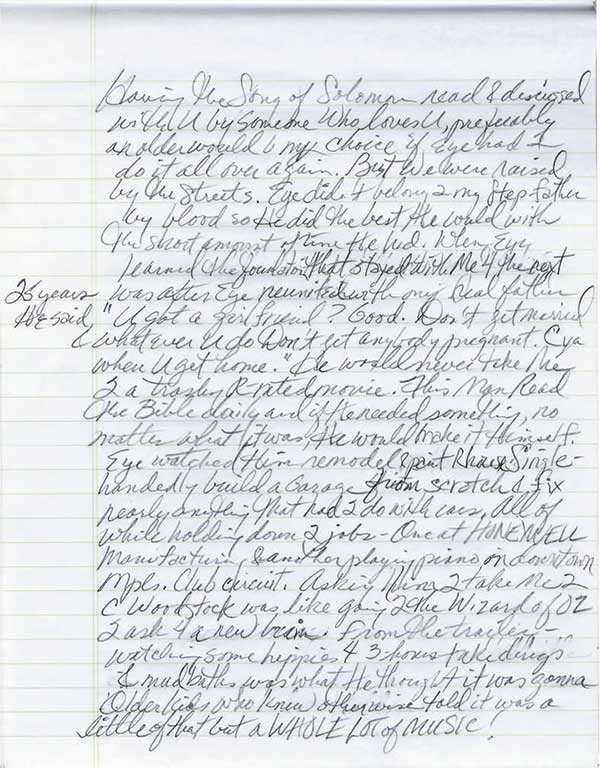 Having the Song of Solomon read & discussed
with U by someone Who loves U, preferably
an older would b my choice if Eye had 2
do it all over again. But We were raised
by the Streets. Eye didn't belong 2 my Stepfather
by blood so He did the best He could with
the short amount of time He had. When Eye
learned the foundation that stayed with Me 4 the next
25 years was after Eye reunited with my Real father
He said, "U got a girlfriend? Good. Don't get married
& whatever U do Don't get anybody pregnant. C ya
when U get home." He would never take Me
2 a trashy R rated movie. This Man Read
the Bible daily and if He needed something, no
matter what it was, He would make it Himself.
Eye watched Him remodel & paint R house, Single-
handedly build a Garage from scratch & fix
nearly anything that had 2 do with cars. All of
while holding down 2 jobs - One at HONEYWELL
Manufacturing & another playing piano on downtown
Mpls. Club circuit. Asking Him 2 take Me 2
C Woodstock was like going 2 the Wizard of OZ
2 ask 4 a new brain. From the trailer -
watching some hippies 4 3-hours take "drugs"
& mud baths was what He thought it was gonna
Older kids who knew otherwise told it was a
little of that but a WHOLE LOT of MUSIC!